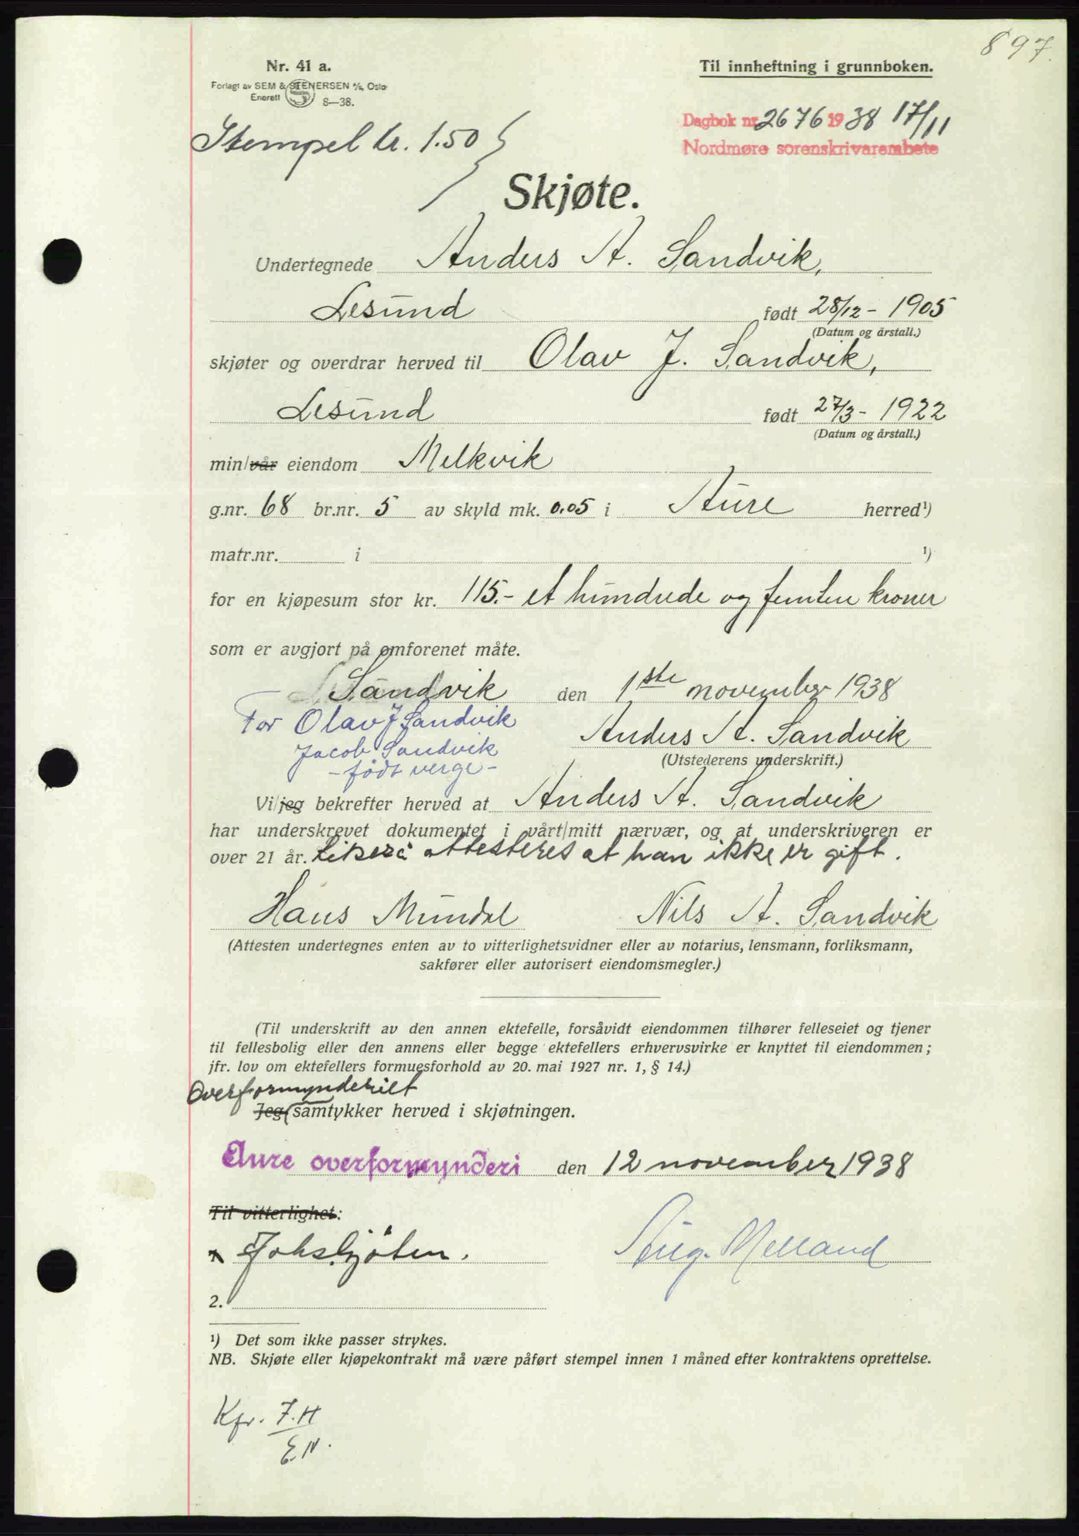 897.
Nr. 41 a.
Forlagt av SEM & STENERSEN A/S, Oslo
Enerett 8—38.
Til innheftning i grunnboken.
Dagbok nr. 2676 1938 17/11
Nordmøre sorenskrivarembete
Stempel kr. 1.50
Skjøte.
Undertegnede Anders A. Sandvik,
Lesund født 28/12 - 1905
(Datum og årstall.)
skjøter og overdrar herved til Olav J. Sandvik,
Lesund født 27/3 - 1922
(Datum og årstall.)
min/vår eiendom Melkvik
g.nr. 68 br.nr. 5 av skyld mk. 0.05 i Aure herred¹)
matr.nr. i ¹)
for en kjøpesum stor kr. 115.- et hundrede og femten kroner
som er avgjort på omforenet måte.
Sandvik den 1ste november 1938
For Olav J Sandvik
Anders A. Sandvik
Jacob Sandvik
(Utstederens underskrift.)
- født verge -
Vi/jeg bekrefter herved at Anders A. Sandvik
har underskrevet dokumentet i vårt/mitt nærvær, og at underskriveren er
over 21 år. Likeså attesteres at han ikke er gift.
Hans Mundal Nils A. Sandvik
(Attesten undertegnes enten av to vitterlighetsvidner eller av notarius, lensmann, forliksmann,
sakfører eller autorisert eiendomsmegler.)
(Til underskrift av den annen ektefelle, forsåvidt eiendommen tilhører felleseiet og tjener
til fellesbolig eller den annens eller begge ektefellers erhvervsvirke er knyttet til eiendommen;
jfr. lov om ektefellers formuesforhold av 20. mai 1927 nr. 1, § 14.)
Overformynderiet
Jeg samtykker herved i skjøtningen.
Aure overformynderi den 12 november 1938
Til vitterlighet:
Melland
2.
¹) Det som ikke passer strykes.
NB. Skjøte eller kjøpekontrakt må være påført stempel innen 1 måned efter kontraktens oprettelse.
Kfr. J.H
E.N.